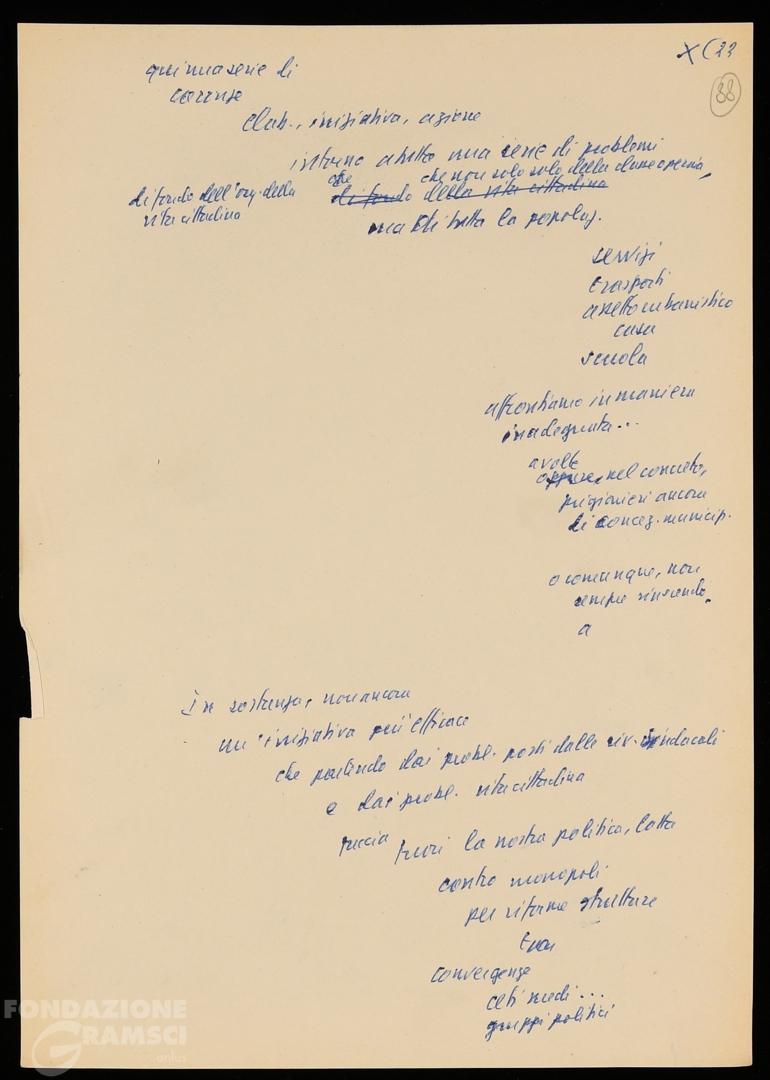 X (22
38
qui una serie di
carenze
elab., iniziativa, azione
intorno a tutta una serie di problemi
che che non solo solo della classe operaia,
di fondo dell'org. della di fondo della vita cittadina
vita cittadina
ma di tutta la popolaz.
servizi
trasporti
assetto urbanistico
casa
scuola
affrontiamo in maniera
inadeguata...
a volte
oppure, nel concreto,
prigionieri ancora
di concez. municip.
o comunque, non
sempre riuscendo
a
In sostanza, non ancora
un'iniziativa più efficace
che partendo dai probl. posti dalle riv. sindacali
e dai probl. vita cittadina
faccia
la nostra politica, lotta
contro monopoli
per riforme strutture
convergenze
ceti medi...
gruppi politici
FONDAZIONE
GRAMSCI
onlus